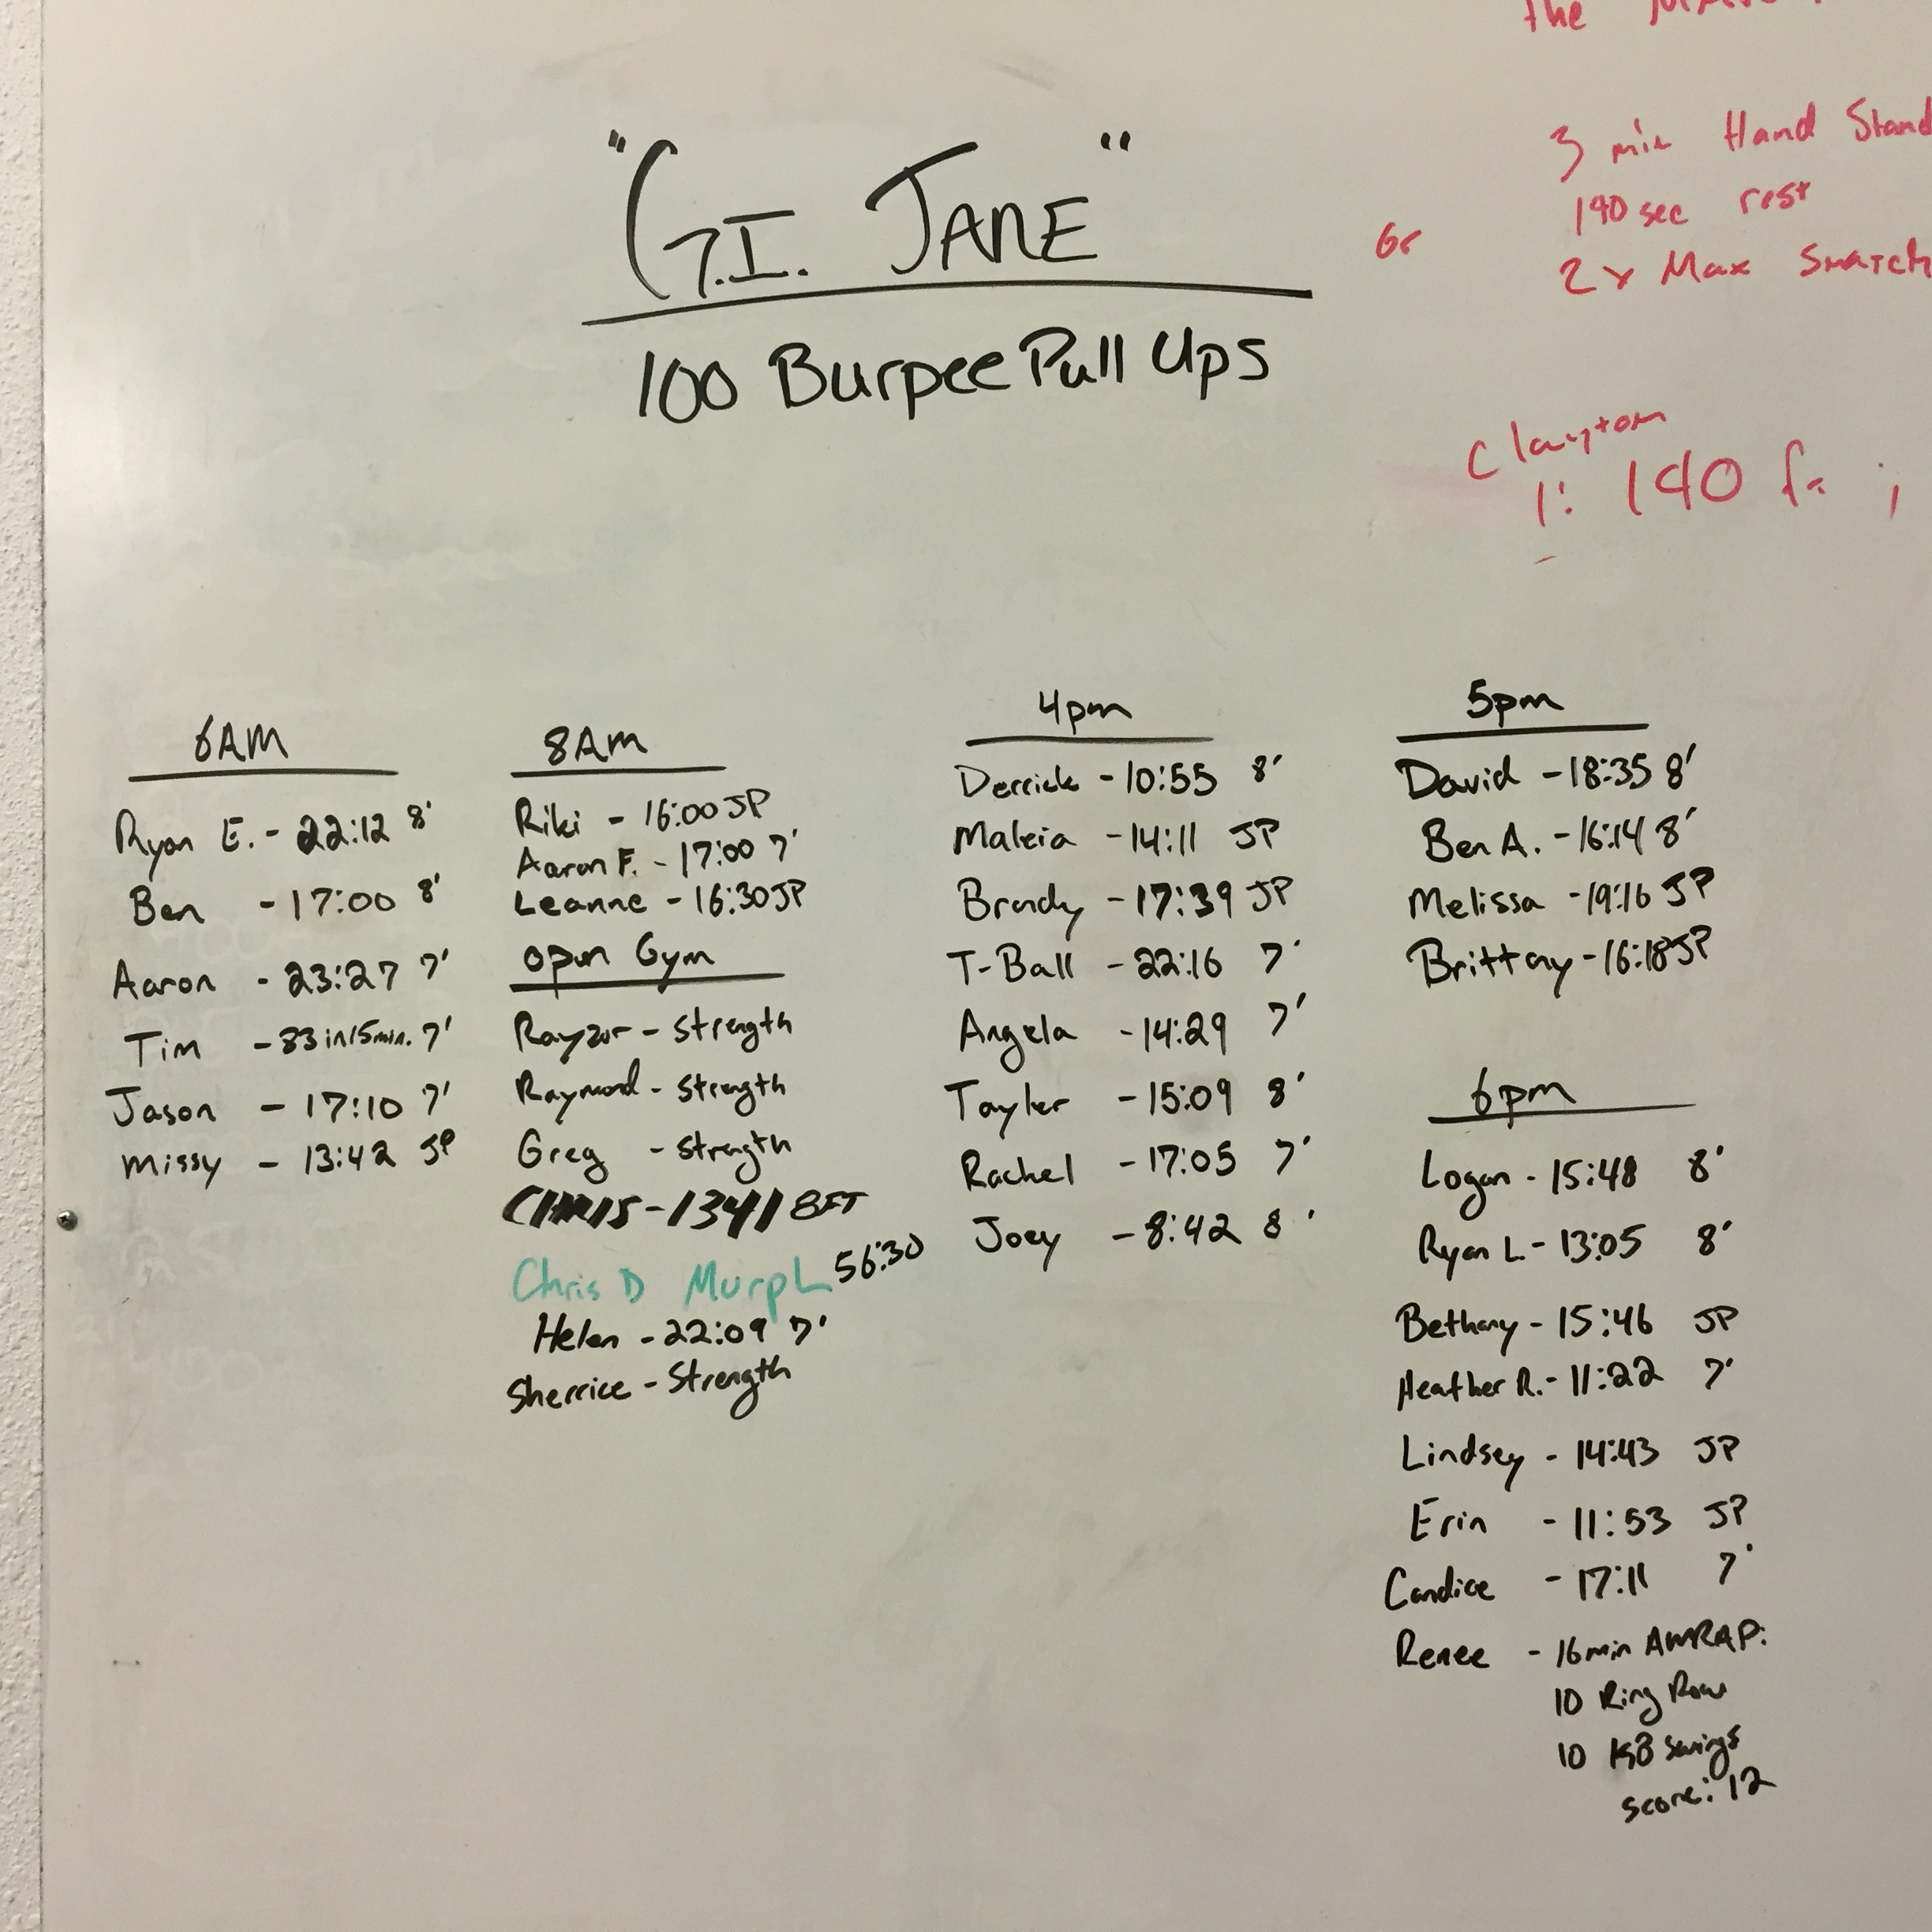 "G.I. JANE"
100 Burpee Pull Ups
the
3 min Hand Stand
190 sec rest
or
2x Max Snatch
Clayton
1: 140
6AM
Ryan E. - 22:12 8'
Ben - 17:00 8'
Aaron - 23:27 7'
Tim - 83 in 15 min. 7'
Jason - 17:10 7'
Missy - 13:42 JP
8AM
Riki - 16:00 JP
Aaron F. - 17:00 7'
Leanne - 16:30 JP
Open Gym
Rayzor - Strength
Raymond - Strength
Greg - Strength
CHRIS - 1341 8FT
Chris D Murph 56:30
Helen - 22:09 7'
Sherrice - Strength
4pm
Derrick - 10:55 8'
Maleia - 14:11 JP
Brady - 17:39 JP
T-Ball - 22:16 7'
Angela - 14:29 7'
Tayler - 15:09 8'
Rachel - 17:05 7'
Joey - 8:42 8'
5pm
David - 18:35 8'
Ben A. - 16:14 8'
Melissa - 19:16 JP
Brittay - 16:18 JP
6pm
Logan - 15:48 8'
Ryan L. - 13:05 8'
Bethany - 15:46 JP
Heather R. - 11:22 7'
Lindsey - 14:43 JP
Erin - 11:53 JP
Candice - 17:11 7'
Renee - 16 min AMRAP:
10 Ring Row
10 KB Swings
score: 12